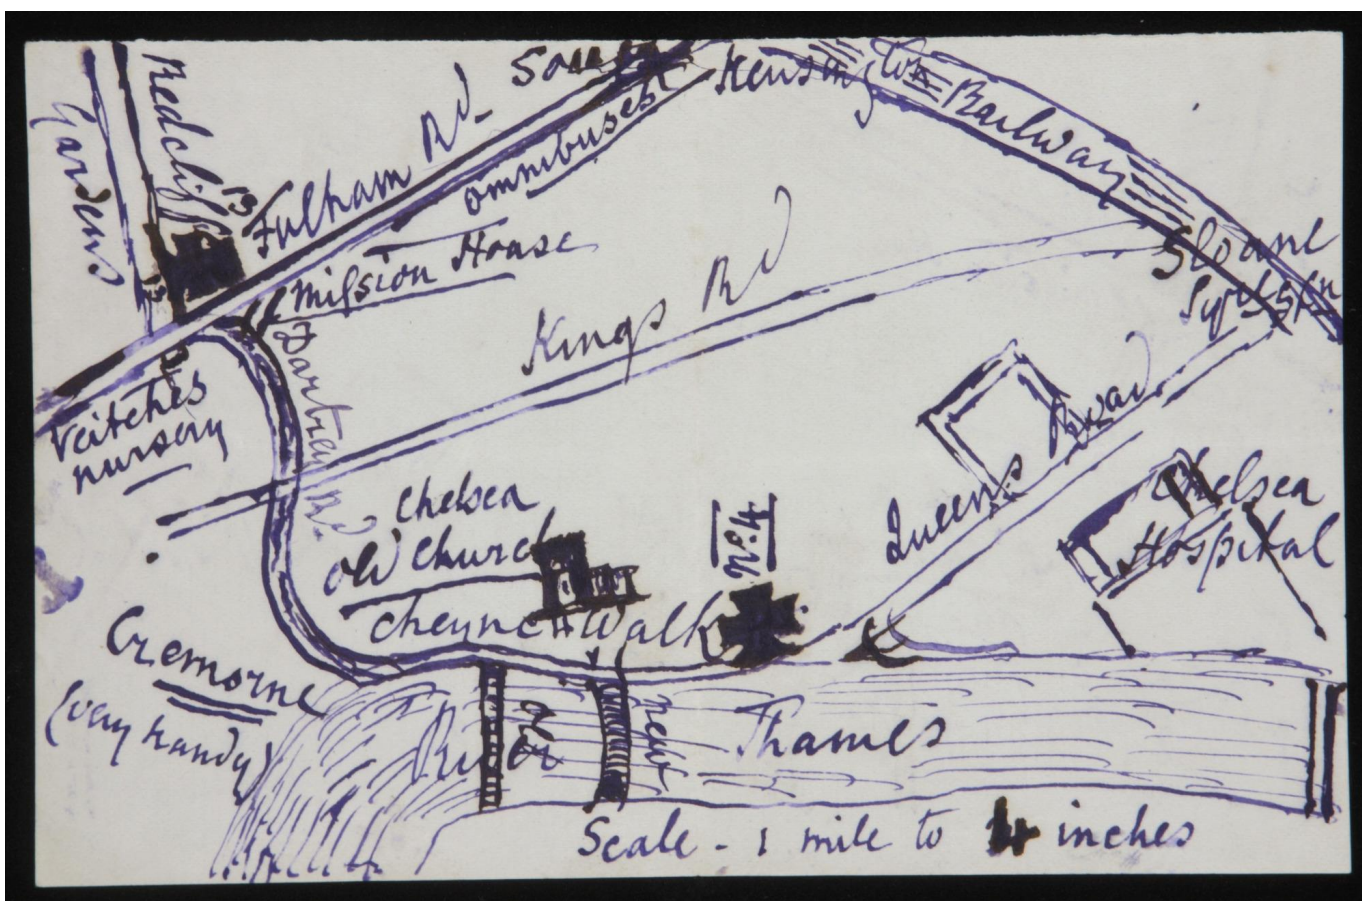 Redcliffe
Gardens
Fulham Rd
South Kensington Railway
omnibuses
Mission House
Kings Rd
Sloane
Veitches
nursery
Dartrey Rd
Queens Road
Chelsea
Old Church
Cheyne Walk
No. 4
Chelsea
Hospital
Cremorne
(very handy)
River Thames
old
new
Scale - 1 mile to 4 inches